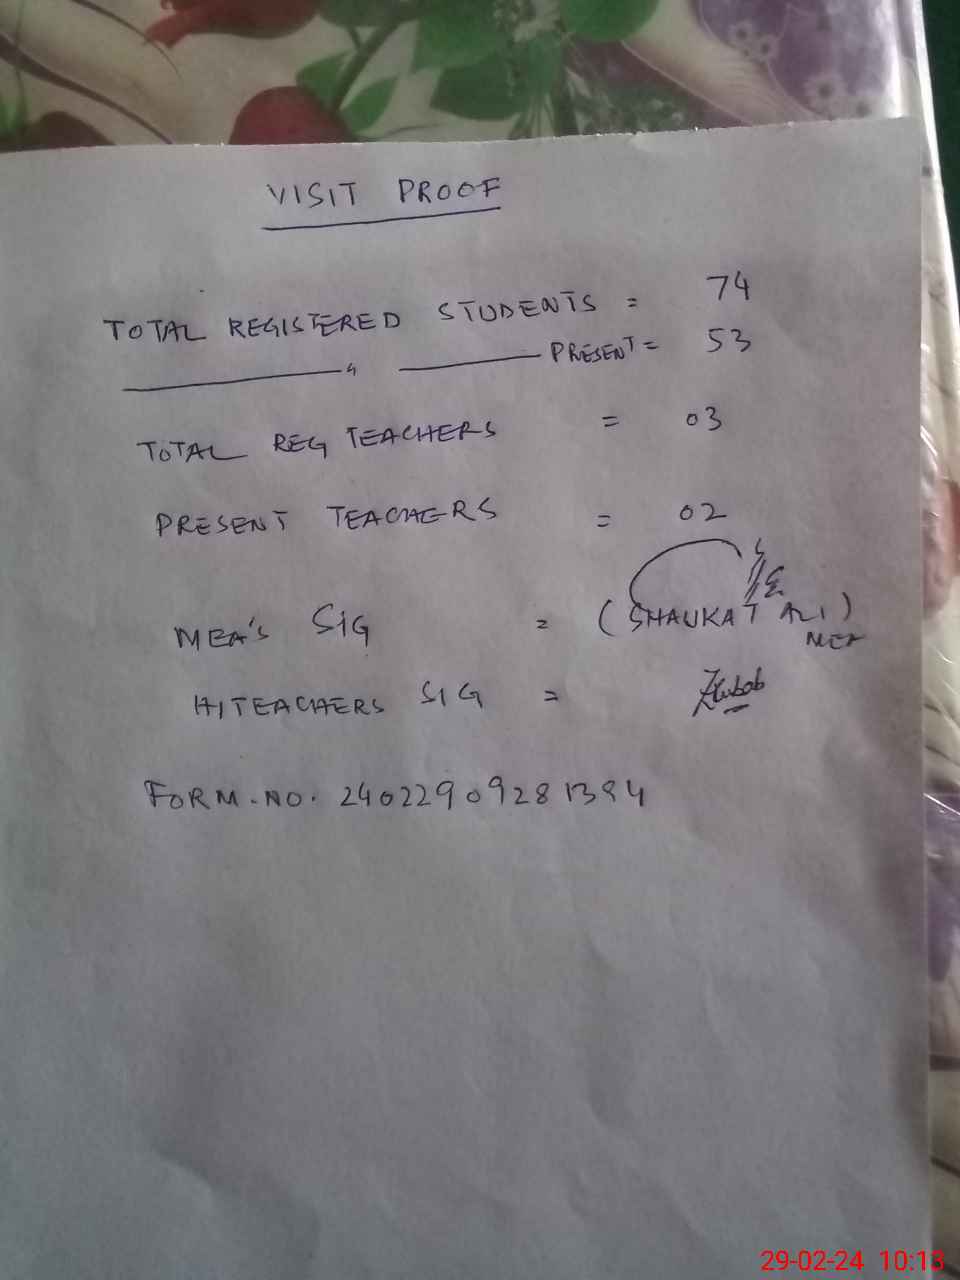 VISIT PROOF
TOTAL REGISTERED STUDENTS = 74
———— " ———— PRESENT = 53
TOTAL REG TEACHERS = 03
PRESENT TEACHERS = 02
MEA'S SIG = (SHAUKAT ALI)
MEA
H/TEACHERS SIG =
FORM.NO. 24022909281384
29-02-24 10:13